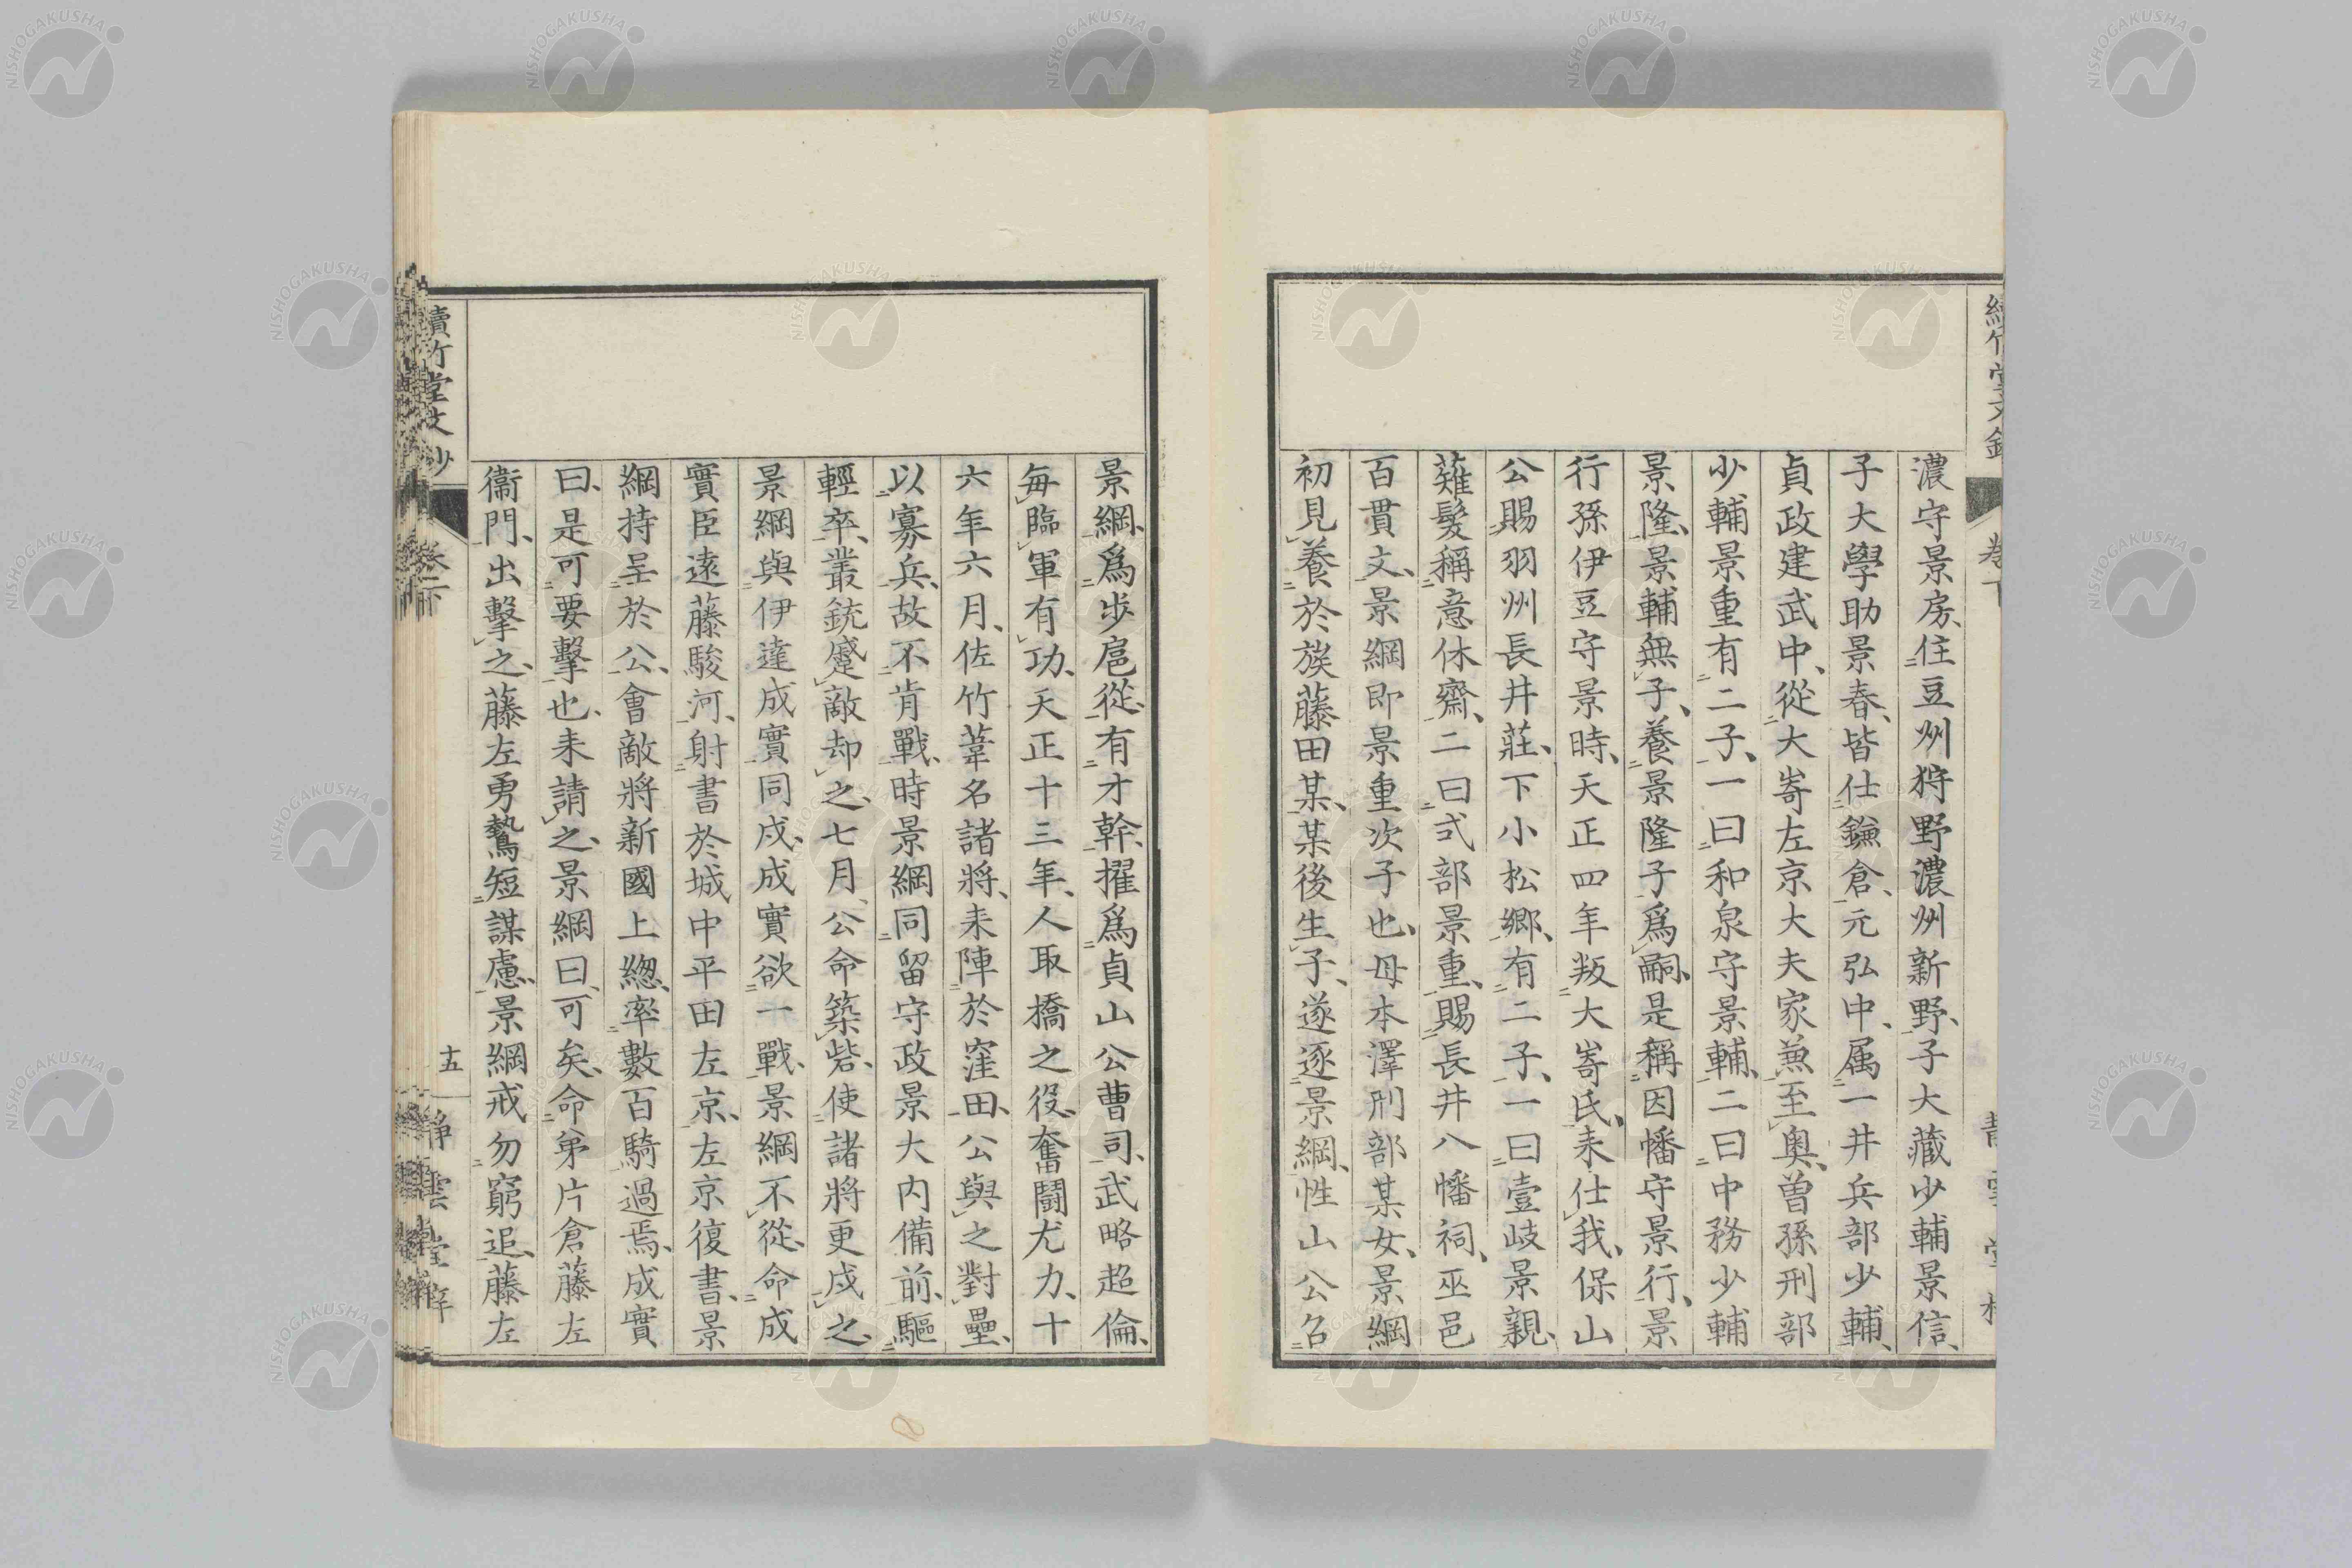 濃守景房、住豆州狩野濃州新野、子大藏少輔景信、
子大學助景春、皆仕鎌倉、元弘中、属一井兵部少輔、
貞政建武中、從大嵜左京大夫家兼至奥、曽孫刑部
少輔景重有二子、一曰和泉守景輔、二曰中務少輔
景隆、景輔無子、養景隆子爲嗣、是稱因幡守景行、景
行孫伊豆守景時、天正四年叛大嵜氏、来仕我、保山
公賜羽州長井莊、下小松郷、有二子、一曰壹岐景親、
薙髮稱意休齋、二曰式部景重、賜長井八幡祠、巫邑
百貫文、景綱即景重次子也、母本澤刑部某女、景綱
初見養於族藤田某、某後生子、遂逐景綱、性山公召
景綱、爲步扈從、有才幹、擢爲貞山公曹司、武略超倫、
毎臨軍有功、天正十三年、人取橋之役、奮鬪尤力、十
六年六月、佐竹葦名諸將、来陣於窪田、公與之對壘、
以寡兵、故不肯戰、時景綱同留守政景大内備前、驅
輕卒、叢銃蹙敵却之、七月、公命築砦、使諸將更戍之、
景綱與伊達成實同戍、成實欲一戰、景綱不從、命成
實臣遠藤駿河、射書於城中平田左京、左京復書、景
綱持呈於公、會敵將新國上總、率數百騎過焉、成實
曰、是可要擊也、来請之、景綱曰、可矣、命弟片倉藤左
衞門、出擊之、藤左勇鷙短謀慮、景綱戒勿窮追、藤左
續竹堂文鈔
卷下
十五
靜雲堂梓